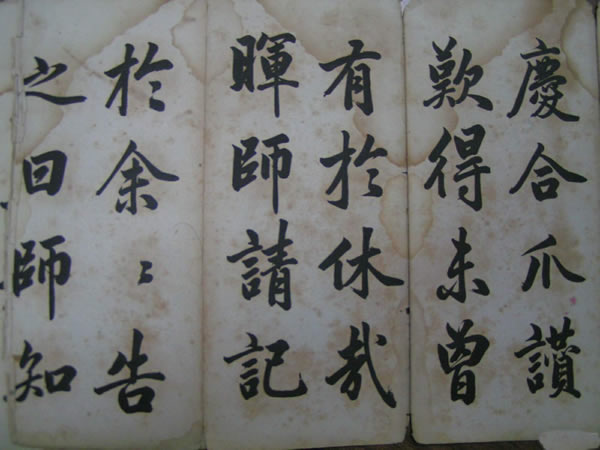 慶合爪讚
歎得未曾
有於休哉
暉師請記
於余〻告
之曰師知